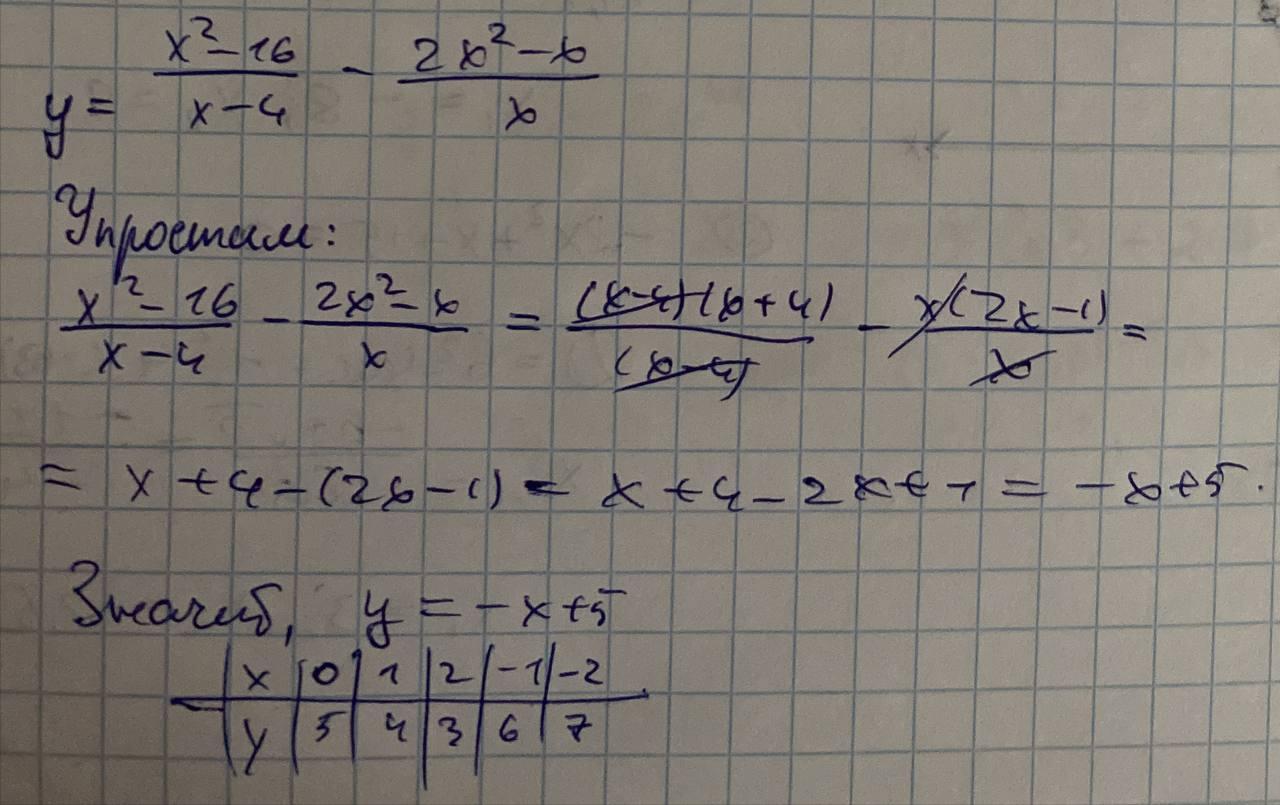 y = (x² - 16)/(x - 4) - (2x² - x)/x
Упростим:
(x² - 16)/(x - 4) - (2x² - x)/x = ((x-4)(x+4))/((x-4)) - (x(2x-1))/x =
= x + 4 - (2x - 1) = x + 4 - 2x + 1 = -x + 5.
Значит, y = -x + 5
x | 0 | 1 | 2 | -1 | -2
y | 5 | 4 | 3 | 6 | 7